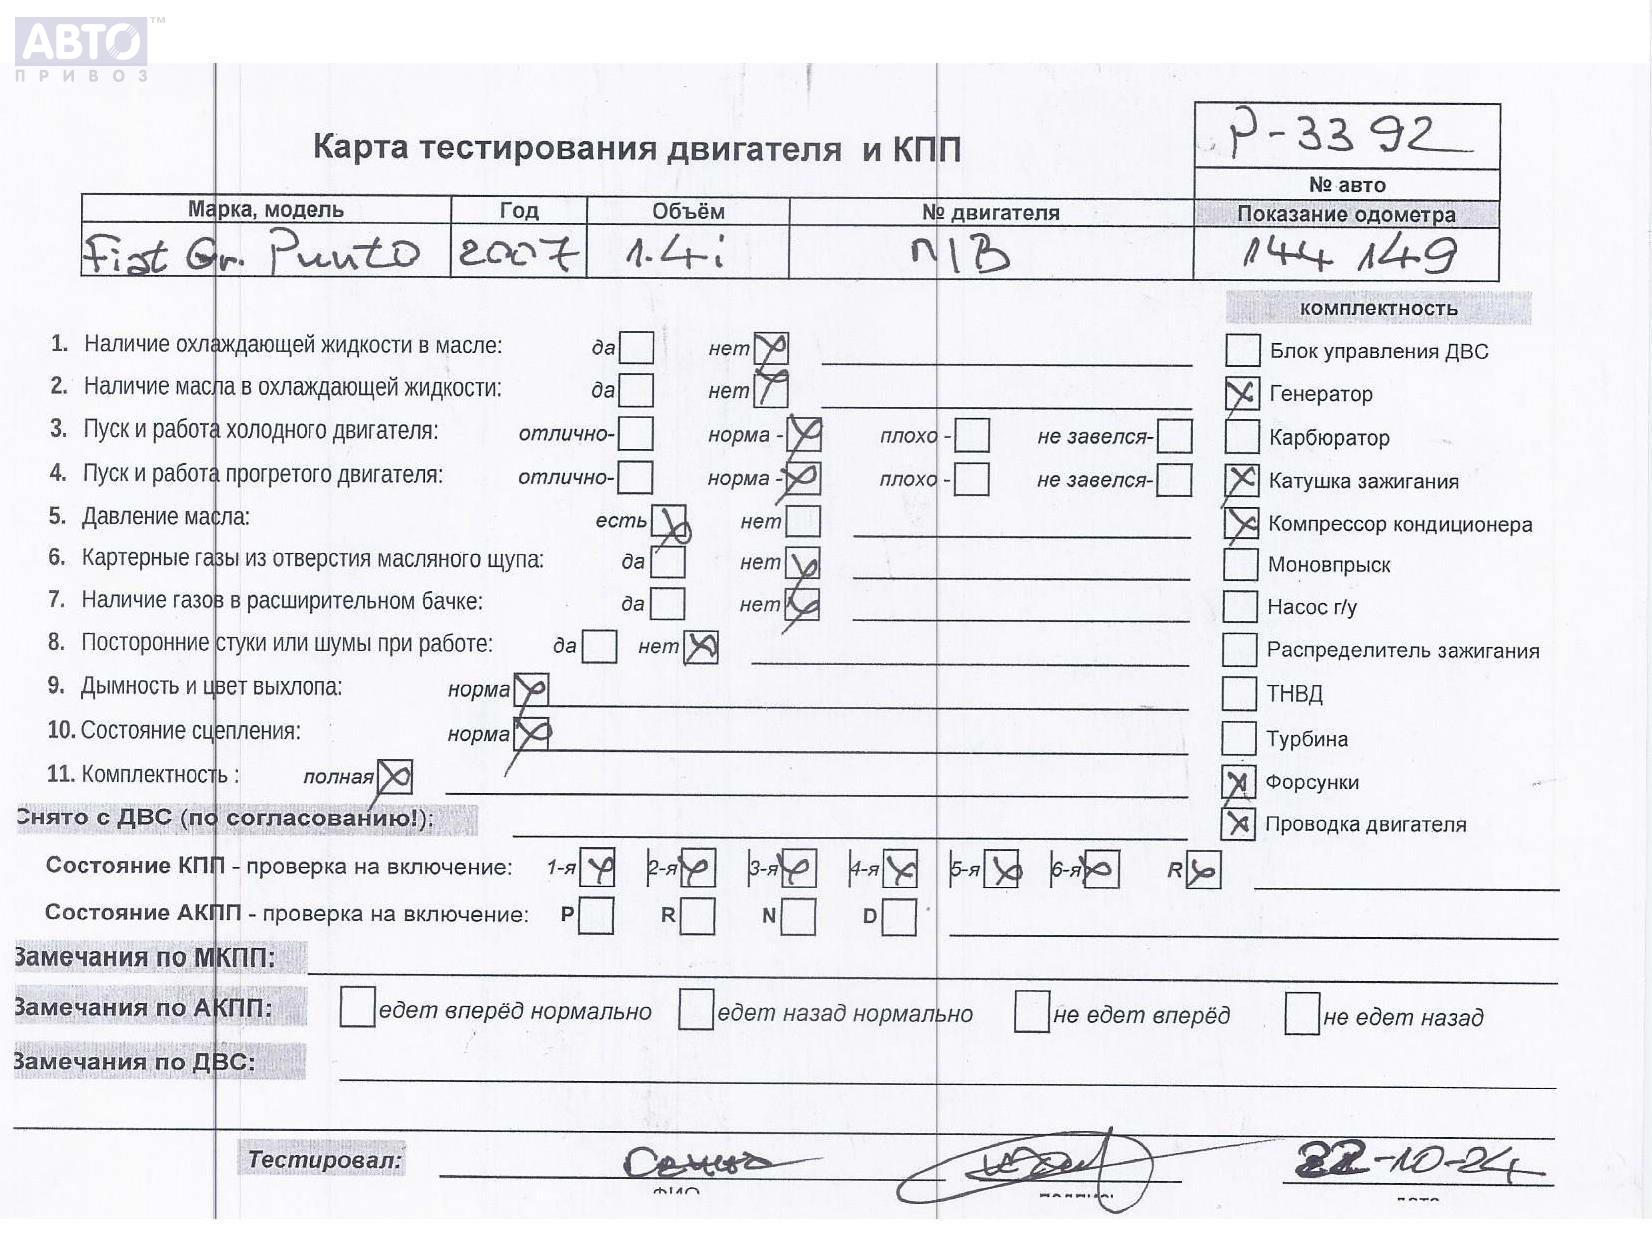 АВТО™
ПРИВОЗ
P-3392
Карта тестирования двигателя и КПП
№ авто
Марка, модель Год Объём № двигателя Показание одометра
Fiat Gr. Punto 2007 1.4i П/В 144 149
комплектность
1. Наличие охлаждающей жидкости в масле: да нет
Блок управления ДВС
2. Наличие масла в охлаждающей жидкости: да нет
Генератор
3. Пуск и работа холодного двигателя: отлично- норма - плохо - не завелся-
Карбюратор
4. Пуск и работа прогретого двигателя: отлично- норма - плохо - не завелся-
Катушка зажигания
5. Давление масла: есть нет
Компрессор кондиционера
6. Картерные газы из отверстия масляного щупа: да нет
Моновпрыск
7. Наличие газов в расширительном бачке: да нет
Насос г/у
8. Посторонние стуки или шумы при работе: да нет
Распределитель зажигания
9. Дымность и цвет выхлопа: норма
ТНВД
10. Состояние сцепления: норма
Турбина
11. Комплектность : полная
Форсунки
Снято с ДВС (по согласованию!):
Проводка двигателя
Состояние КПП - проверка на включение: 1-я 2-я 3-я 4-я 5-я 6-я R
Состояние АКПП - проверка на включение: P R N D
Замечания по МКПП:
Замечания по АКПП: едет вперёд нормально едет назад нормально не едет вперёд не едет назад
Замечания по ДВС:
Тестировал: 22-10-24